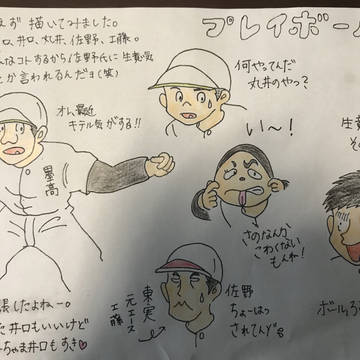 プレイボー
えず 描いてみました。
ロ、井口、丸井、佐野、工藤。
なコトするから佐野氏に 生意気
とか言われるんだヨ(笑)
オレ、最近
キテル気がする!!
墨高
何やってんだ
丸井のやつ?
い〜!
さのなんか
こわくない
もんね!
生意
その
張したよねー。
井口もいいけど
ちゃま井口もすき♥
東実
元エース
工藤
佐野
ちょーはつ
されてんぞ
ボール